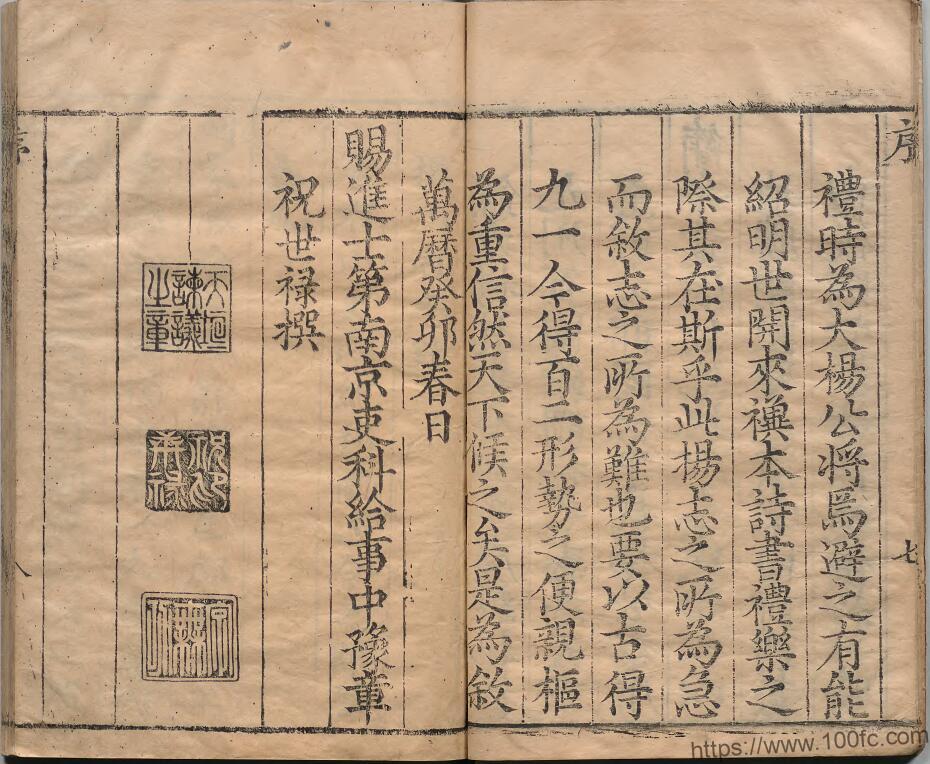 序
禮時為大楊公將焉避之有能
紹明世開來禩本詩書禮樂之
際其在斯乎此揚志之所為急
而敘志之所為難也要以古得
九一今得百二形勢之便親樞
為重信然天下候之矣是為敘
七
萬曆癸卯春日
賜進士第南京吏科給事中豫章
祝世祿撰
諫議
之章
序
八
https://www.100fc.com